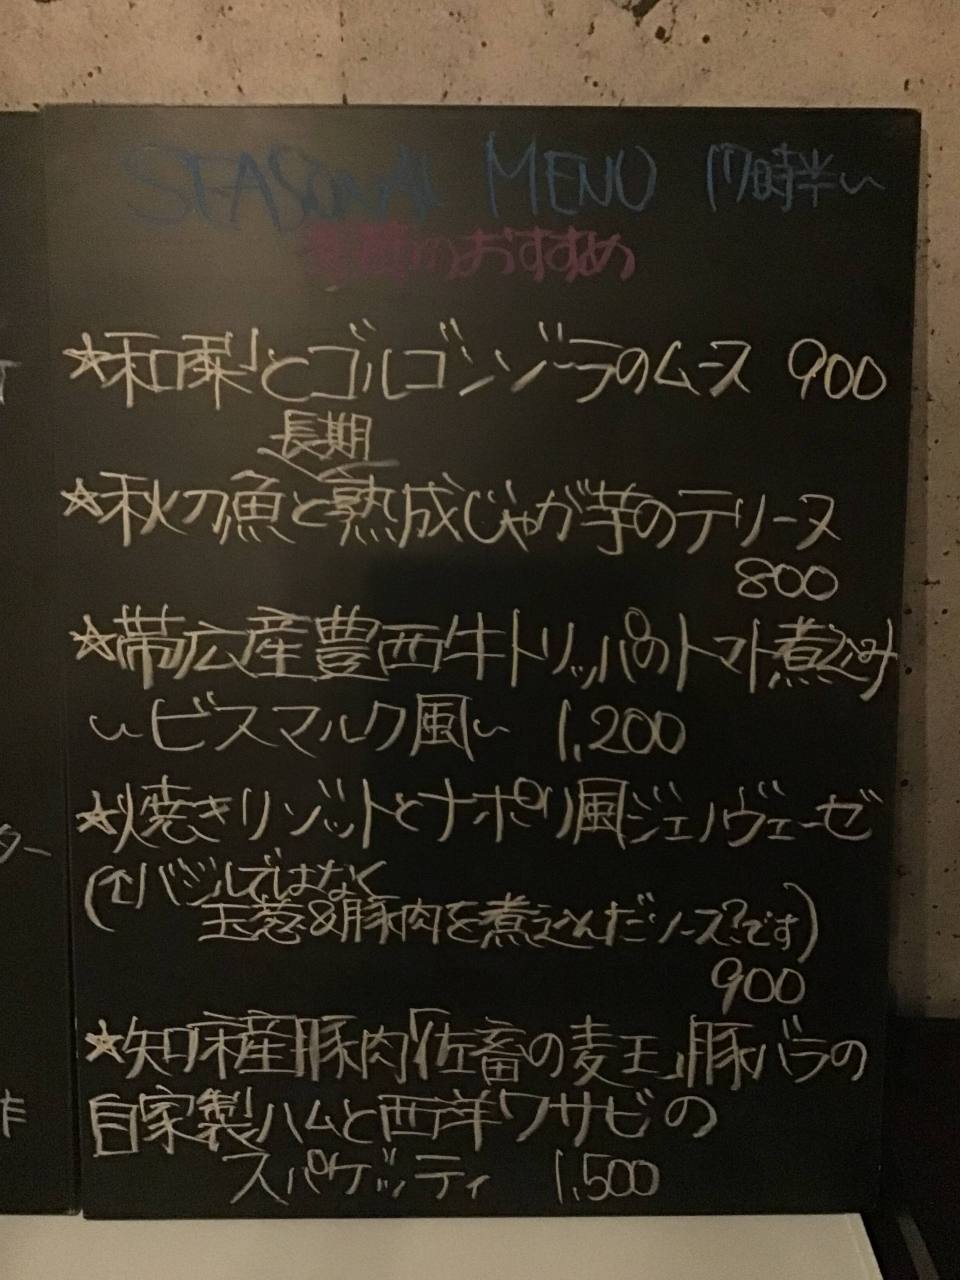 SEASONAL MENU 17時半〜
季節のおすすめ
☆和梨とゴルゴンゾーラのムース 900
長期
☆秋刀魚と熟成じゃが芋のテリーヌ
800
☆帯広産豊西牛トリッパのトマト煮込み
〜ビスマルク風〜 1,200
☆焼きリゾットとナポリ風ジェノヴェーゼ
(↑バジルではなく
玉葱&豚肉を煮込んだソース?です)
900
☆知床産豚肉「佐畜の麦王」豚バラの
自家製ハムと西洋ワサビの
スパゲッティ 1,500
ター